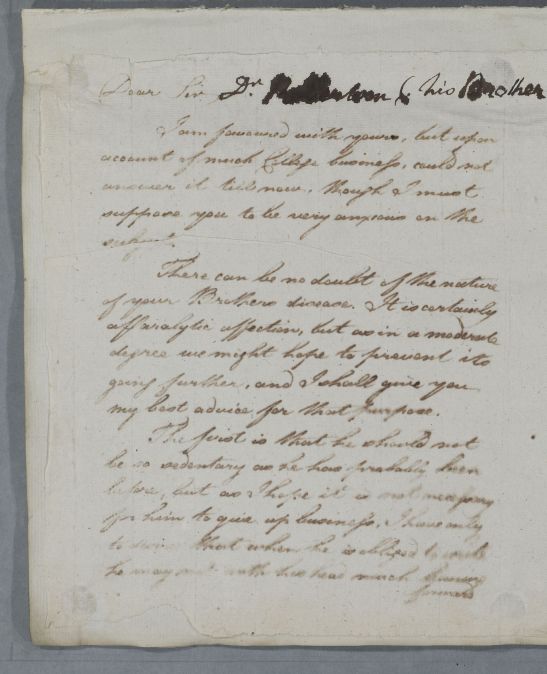 Dear Sir Dr & his Brother
I am favoured with yours, but upon
account of much College business, could not
answer it till now, though I must
suppose you to be very anxious on the
subject.
There can be no doubt of the nature
of your Brothers disease. It is certainly
a Paralytic affection, but as in a moderate
degree we might hope to prevent its
going further, and I shall give you
my best advice for that purpose.
The first is that he should not
be so sedentary as he has probably been
before, but as I hope it is not necessary
for him to give up business, I have only
to that when he is obliged to write
he may not with his head much
forward